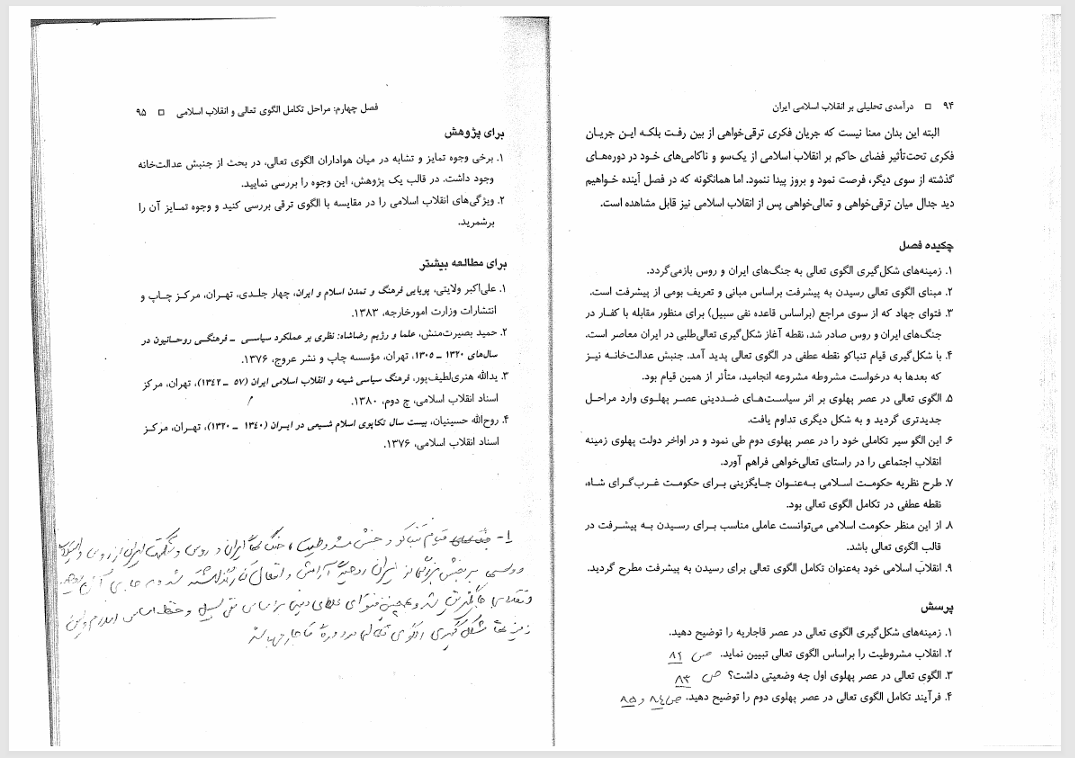 ۹۴ □ درآمدی تحلیلی بر انقلاب اسلامی ایران
البته این بدان معنا نیست که جریان فکری ترقی‌خواهی از بین رفت بلکه این جریان
فکری تحت‌تأثیر فضای حاکم بر انقلاب اسلامی از یک‌سو و ناکامی‌های خود در دوره‌های
گذشته از سوی دیگر، فرصت نمود و بروز پیدا ننمود. اما همانگونه که در فصل آینده خواهیم
دید جدال میان ترقی‌خواهی و تعالی‌خواهی پس از انقلاب اسلامی نیز قابل مشاهده است.
چکیده فصل
۱. زمینه‌های شکل‌گیری الگوی تعالی به جنگ‌های ایران و روس بازمی‌گردد.
۲. مبنای الگوی تعالی رسیدن به پیشرفت براساس مبانی و تعریف بومی از پیشرفت است.
۳. فتوای جهاد که از سوی مراجع (براساس قاعده نفی سبیل) برای منظور مقابله با کفار در
جنگ‌های ایران و روس صادر شد، نقطه آغاز شکل‌گیری تعالی‌طلبی در ایران معاصر است.
۴. با شکل‌گیری قیام تنباکو نقطه عطفی در الگوی تعالی پدید آمد. جنبش عدالت‌خانه نیز
که بعدها به درخواست مشروطه مشروعه انجامید، متأثر از همین قیام بود.
۵. الگوی تعالی در عصر پهلوی بر اثر سیاست‌های ضددینی عصر پهلوی وارد مراحل
جدیدتری گردید و به شکل دیگری تداوم یافت.
۶. این الگو سیر تکاملی خود را در عصر پهلوی دوم طی نمود و در اواخر دولت پهلوی زمینه
انقلاب اجتماعی را در راستای تعالی‌خواهی فراهم آورد.
۷. طرح نظریه حکومت اسلامی به‌عنوان جایگزینی برای حکومت غرب‌گرای شاه،
نقطه عطفی در تکامل الگوی تعالی بود.
۸. از این منظر حکومت اسلامی می‌توانست عاملی مناسب برای رسیدن به پیشرفت در
قالب الگوی تعالی باشد.
۹. انقلاب اسلامی خود به‌عنوان تکامل الگوی تعالی برای رسیدن به پیشرفت مطرح گردید.
پرسش
۱. زمینه‌های شکل‌گیری الگوی تعالی در عصر قاجاریه را توضیح دهید.
۲. انقلاب مشروطیت را براساس الگوی تعالی تبیین نماید. ص ۸۲
۳. الگوی تعالی در عصر پهلوی اول چه وضعیتی داشت؟ ص ۸۳
۴. فرآیند تکامل الگوی تعالی در عصر پهلوی دوم را توضیح دهید. ص ۸۴ و ۸۵
فصل چهارم: مراحل تکامل الگوی تعالی و انقلاب اسلامی □ ۹۵
برای پژوهش
۱. برخی وجوه تمایز و تشابه در میان هواداران الگوی تعالی، در بحث از جنبش عدالت‌خانه
وجود داشت. در قالب یک پژوهش، این وجوه را بررسی نمایید.
۲. ویژگی‌های انقلاب اسلامی را در مقایسه با الگوی ترقی بررسی کنید و وجوه تمایز آن را
برشمرید.
برای مطالعه بیشتر
۱. علی‌اکبر ولایتی، پویایی فرهنگ و تمدن اسلام و ایران، چهار جلدی، تهران، مرکز چاپ و
انتشارات وزارت امورخارجه، ۱۳۸۳.
۲. حمید بصیرت‌منش، علما و رژیم رضاشاه: نظری بر عملکرد سیاسی ـ فرهنگی روحانیون در
سال‌های ۱۳۲۰ ـ ۱۳۰۵، تهران، مؤسسه چاپ و نشر عروج، ۱۳۷۶.
۳. یدالله هنری‌لطیف‌پور، فرهنگ سیاسی شیعه و انقلاب اسلامی ایران (۵۷ ـ ۱۳۴۲)، تهران، مرکز
اسناد انقلاب اسلامی، چ دوم، ۱۳۸۰.
۴. روح‌الله حسینیان، بیست سال تکاپوی اسلام شیعی در ایران (۱۳۴۰ ـ ۱۳۲۰)، تهران، مرکز
اسناد انقلاب اسلامی، ۱۳۷۶.
۱- قیام تنباکو و جنبش مشروطیت، جنگ‌های ایران و روس و شکست ایران از روس و
بر بخش بزرگی از ایران روحیه آرامش و انفعال کنار گذاشته شد و به جای آن
و همچنین فتوای علمای دینی براساس نفی سبیل و حفظ اساس اسلام و این
زمینه‌ها شکل‌گیری الگوی تعالی در دوره قاجار می‌باشد